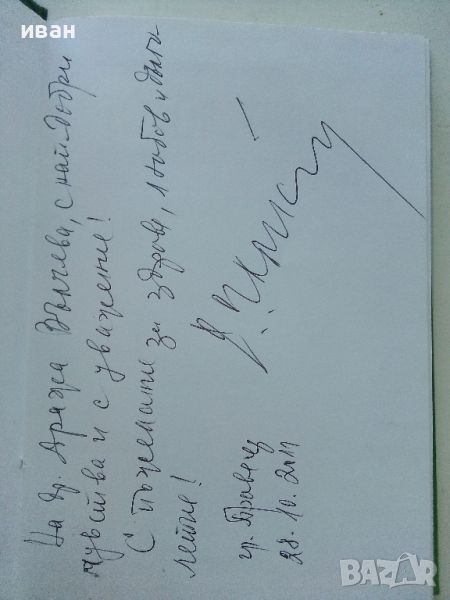 иван
На др. Дража Вълчева, с най-добри
чувства и с уважение!
С пожелание за здраве, любов и дълго-
летие!
гр. Правец
28.10.2011
BAZAR